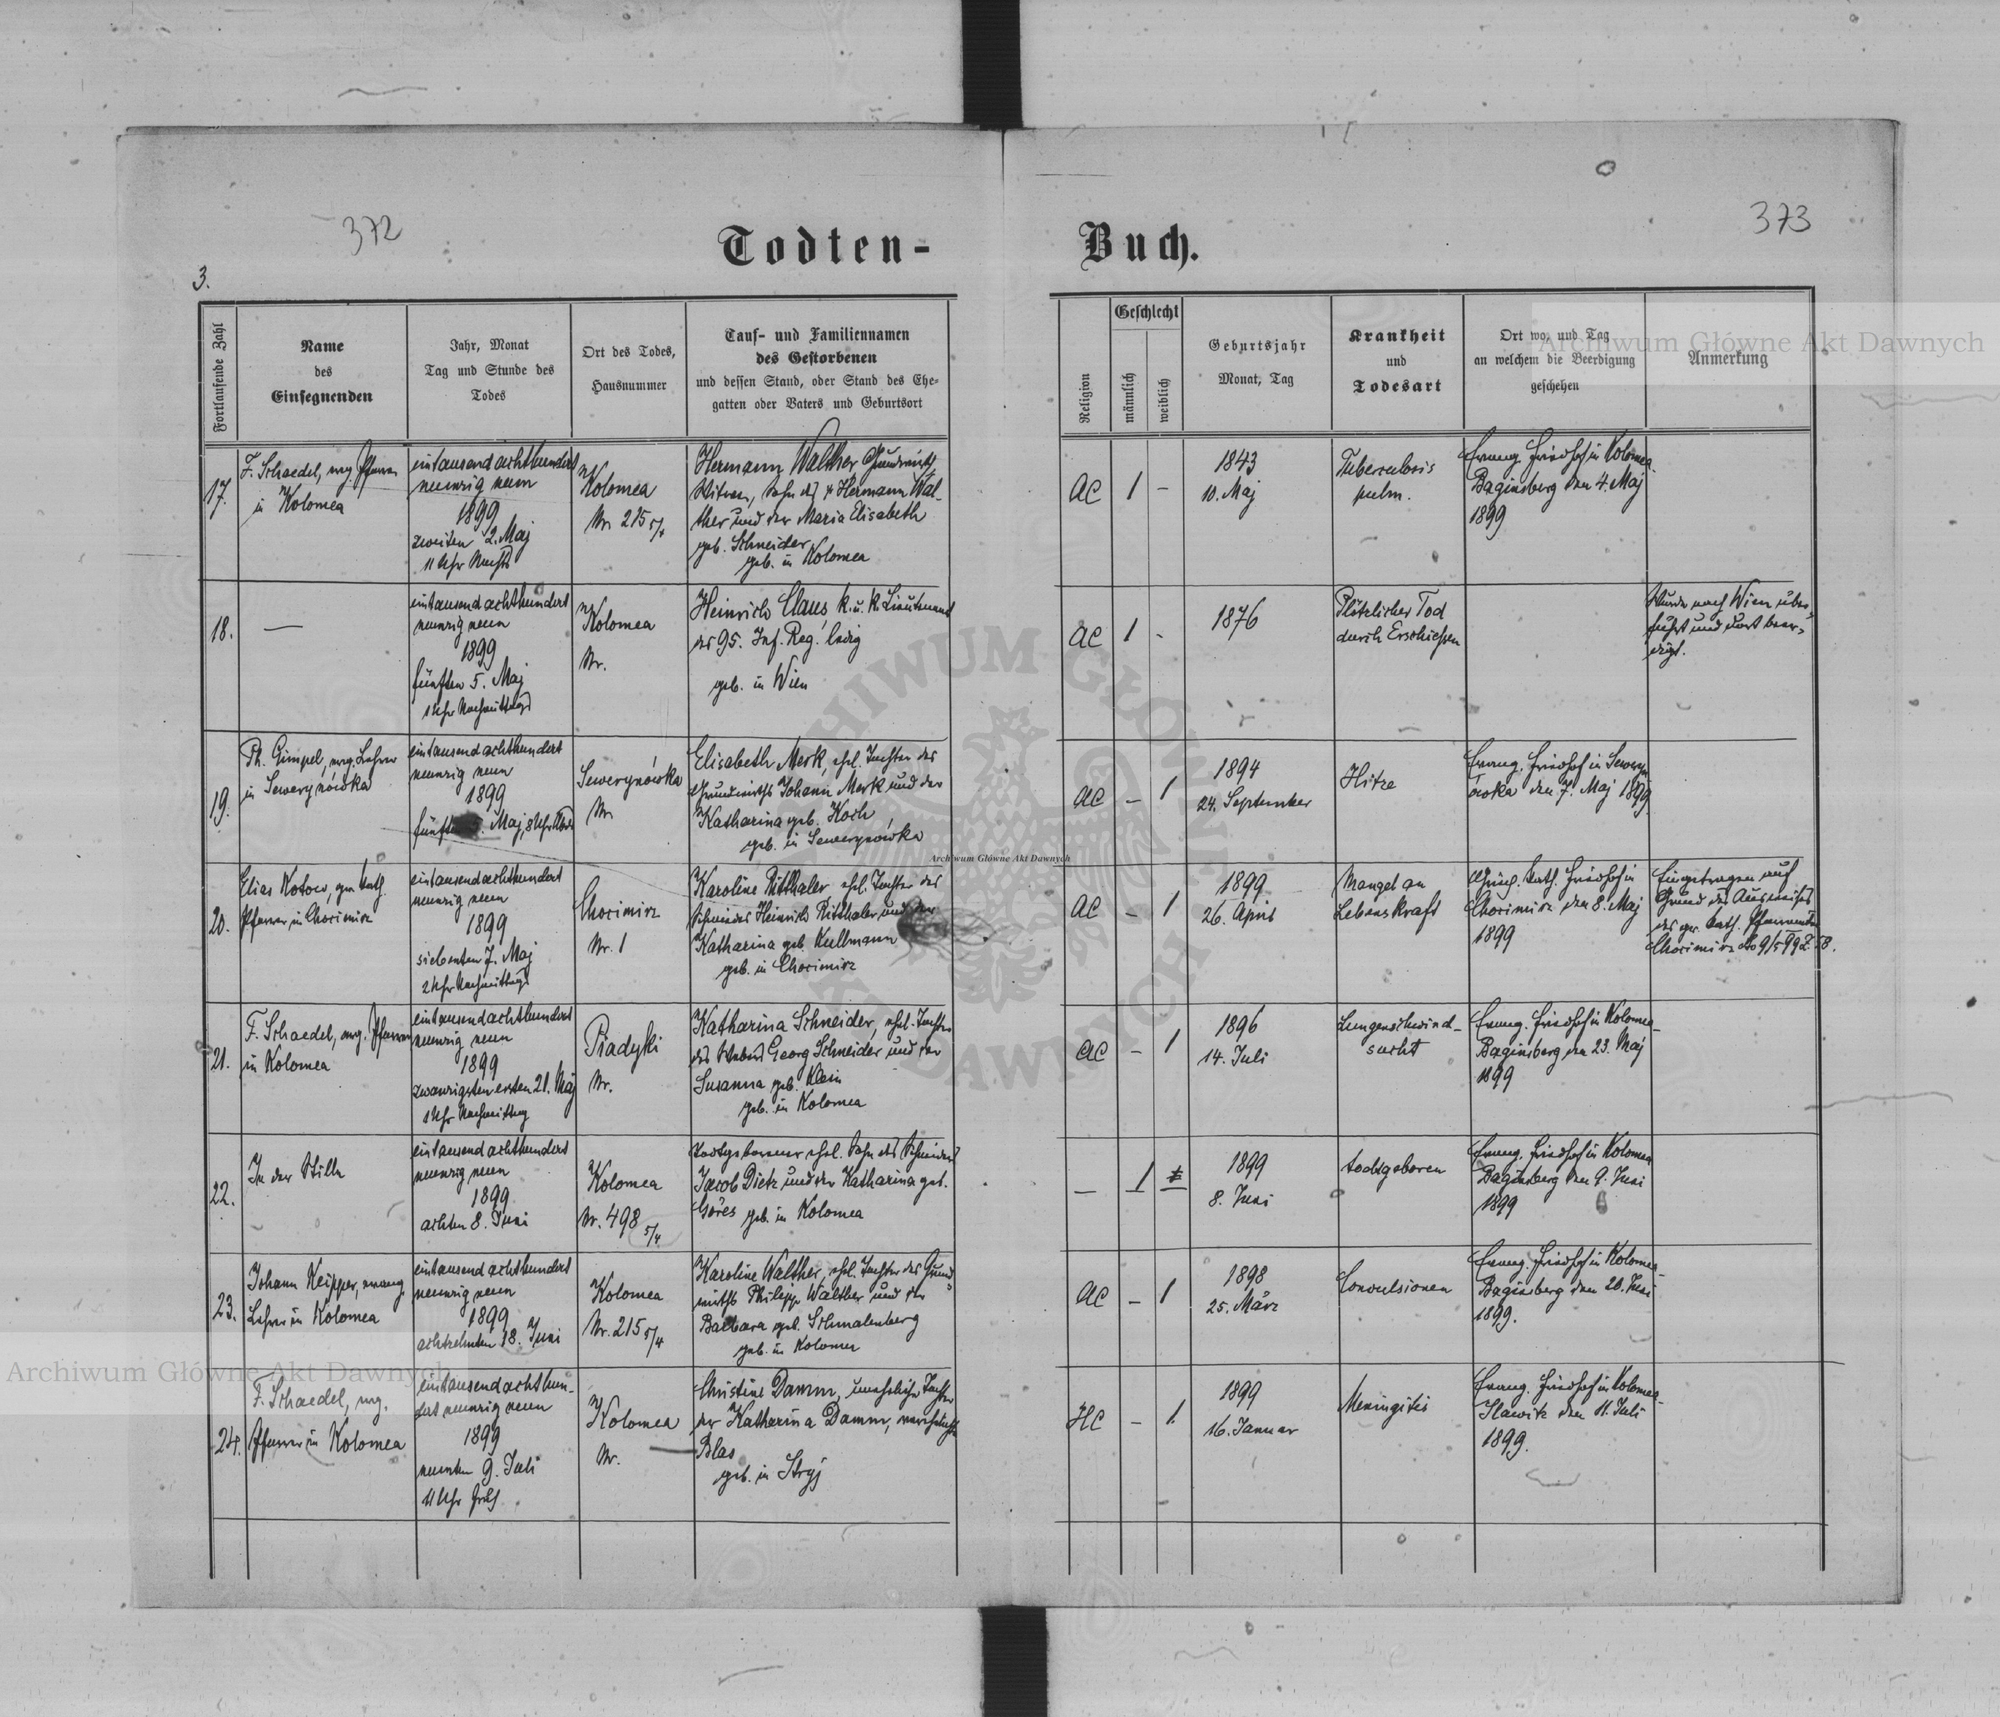 372
373
Todten-Buch.
3.
Fortlaufende Zahl
Name
des
Einsegnenden
Jahr, Monat
Tag und Stunde des
Todes
Ort des Todes,
Hausnummer
Tauf- und Familiennamen
des Gestorbenen
und dessen Stand, oder Stand des Ehe-
gatten oder Vaters und Geburtsort
Religion
Geschlecht
männlich
weiblich
Geburtsjahr
Monat, Tag
Krankheit
und
Todesart
Ort wo, und Tag
an welchem die Beerdigung
geschehen
Anmerkung
17.
F. Schaedel, evg. Pfarrer
in Kolomea
eintausend achthundert
neunzig neun
1899
zweiten 2. Maj
11 Uhr Nachts
Kolomea
Nr. 215 5/4
Hermann Walther Grundwirth,
Witwer, Sohn des + Hermann Wal-
ther und der Maria Elisabeth
geb. Schneider
geb. in Kolomea
AC
1
-
1843
10. Maj
Tuberculosis
pulm.
Evang. Friedhof in Kolomea-
Baginsberg den 4. Maj
1899
18.
—
eintausend achthundert
neunzig neun
1899
fünften 5. Maj
1 Uhr Nachmittags
Kolomea
Nr.
Heinrich Claus k. u. k. Lieutenant
des 95. Inf. Reg. ledig
geb. in Wien
AC
1
-
1876
Plötzlicher Tod
durch Erschießen
Wurde nach Wien über-
führt und dort beer-
digt.
19.
Ph. Gimpel, evg. Lehrer
in Sewerynówka
eintausend achthundert
neunzig neun
1899
Maj, 8 Uhr Abds
Sewerynówka
Nr.
Elisabeth Merk, ehel. Tochter des
Grundwirths Johann Merk und der
Katharina geb. Koch
geb. in Sewerynówka
AC
-
1
1894
24. September
Hitze
Evang. Friedhof in Seweryn
ówka den 7. Maj 1899.
20.
Elias Kotow, gr. kath.
Pfarrer in Chocimirz
eintausend achthundert
neunzig neun
1899
siebenten 7. Maj
2 Uhr Nachmittags
Chocimirz
Nr. 1
Karoline Ritthaler ehel. Tochter des
Schmiedes Heinrich Ritthaler und der
Katharina geb. Kullmann
geb. in Chocimirz
AC
-
1
1899
26. April
Mangel an
Lebenskraft
Griech. kath. Friedhof in
Chocimirz den 8. Maj
1899
Eingetragen auf
Grund des Ausweises
des gr. kath. Pfarramtes
Chocimirz dto 9/5 99 Z. 58.
21.
F. Schaedel, evg. Pfarrer
in Kolomea
eintausend achthundert
neunzig neun
1899
zwanzigsten ersten 21. Maj
1 Uhr Nachmittag
Piadyki
Nr.
Katharina Schneider, ehel. Tochter
des Webers Georg Schneider und der
Susanna geb. Klein
geb. in Kolomea
AC
-
1
1896
14. Juli
Lungenschwind-
sucht
Evang. Friedhof in Kolomea-
Baginsberg den 23. Maj
1899
22.
In der Stille
eintausend achthundert
neunzig neun
1899
achten 8. Juni
Kolomea
Nr. 498 5/4
Todtgeborener ehel. Sohn des Schneiders
Jacob Dietz und der Katharina geb.
Göres geb. in Kolomea
—
1
1899
8. Juni
todtgeboren
Evang. Friedhof in Kolomea
Baginsberg den 9. Juni
1899
23.
Johann Keipper, evang.
Lehrer in Kolomea
eintausend achthundert
neunzig neun
1899
achtzehnten 18. Juni
Kolomea
Nr. 215 5/4
Karoline Walther, ehel. Tochter des Grund-
wirths Philipp Walther und der
Barbara geb. Schmalenberg
geb. in Kolomea
AC
-
1
1898
25. März
Convulsionen
Evang. Friedhof in Kolomea-
Baginsberg den 20. Juni
1899.
24.
F. Schaedel, evg.
Pfarrer in Kolomea
eintausend achthun-
dert neunzig neun
1899
neunten 9. Juli
11 Uhr früh
Kolomea
Nr.
Christine Damm, uneheliche Tochter
der Katharina Damm, verehelichte
Blas
geb. in Stryj
HC
-
1
1899
16. Januar
Meningitis
Evang. Friedhof in Kolomea-
Slawitz den 11. Juli
1899.
Archiwum Główne Akt Dawnych
Archiwum Główne Akt Dawnych
Archiwum Główne Akt Dawnych
ARCHIWUM GŁÓWNE AKT DAWNYCH